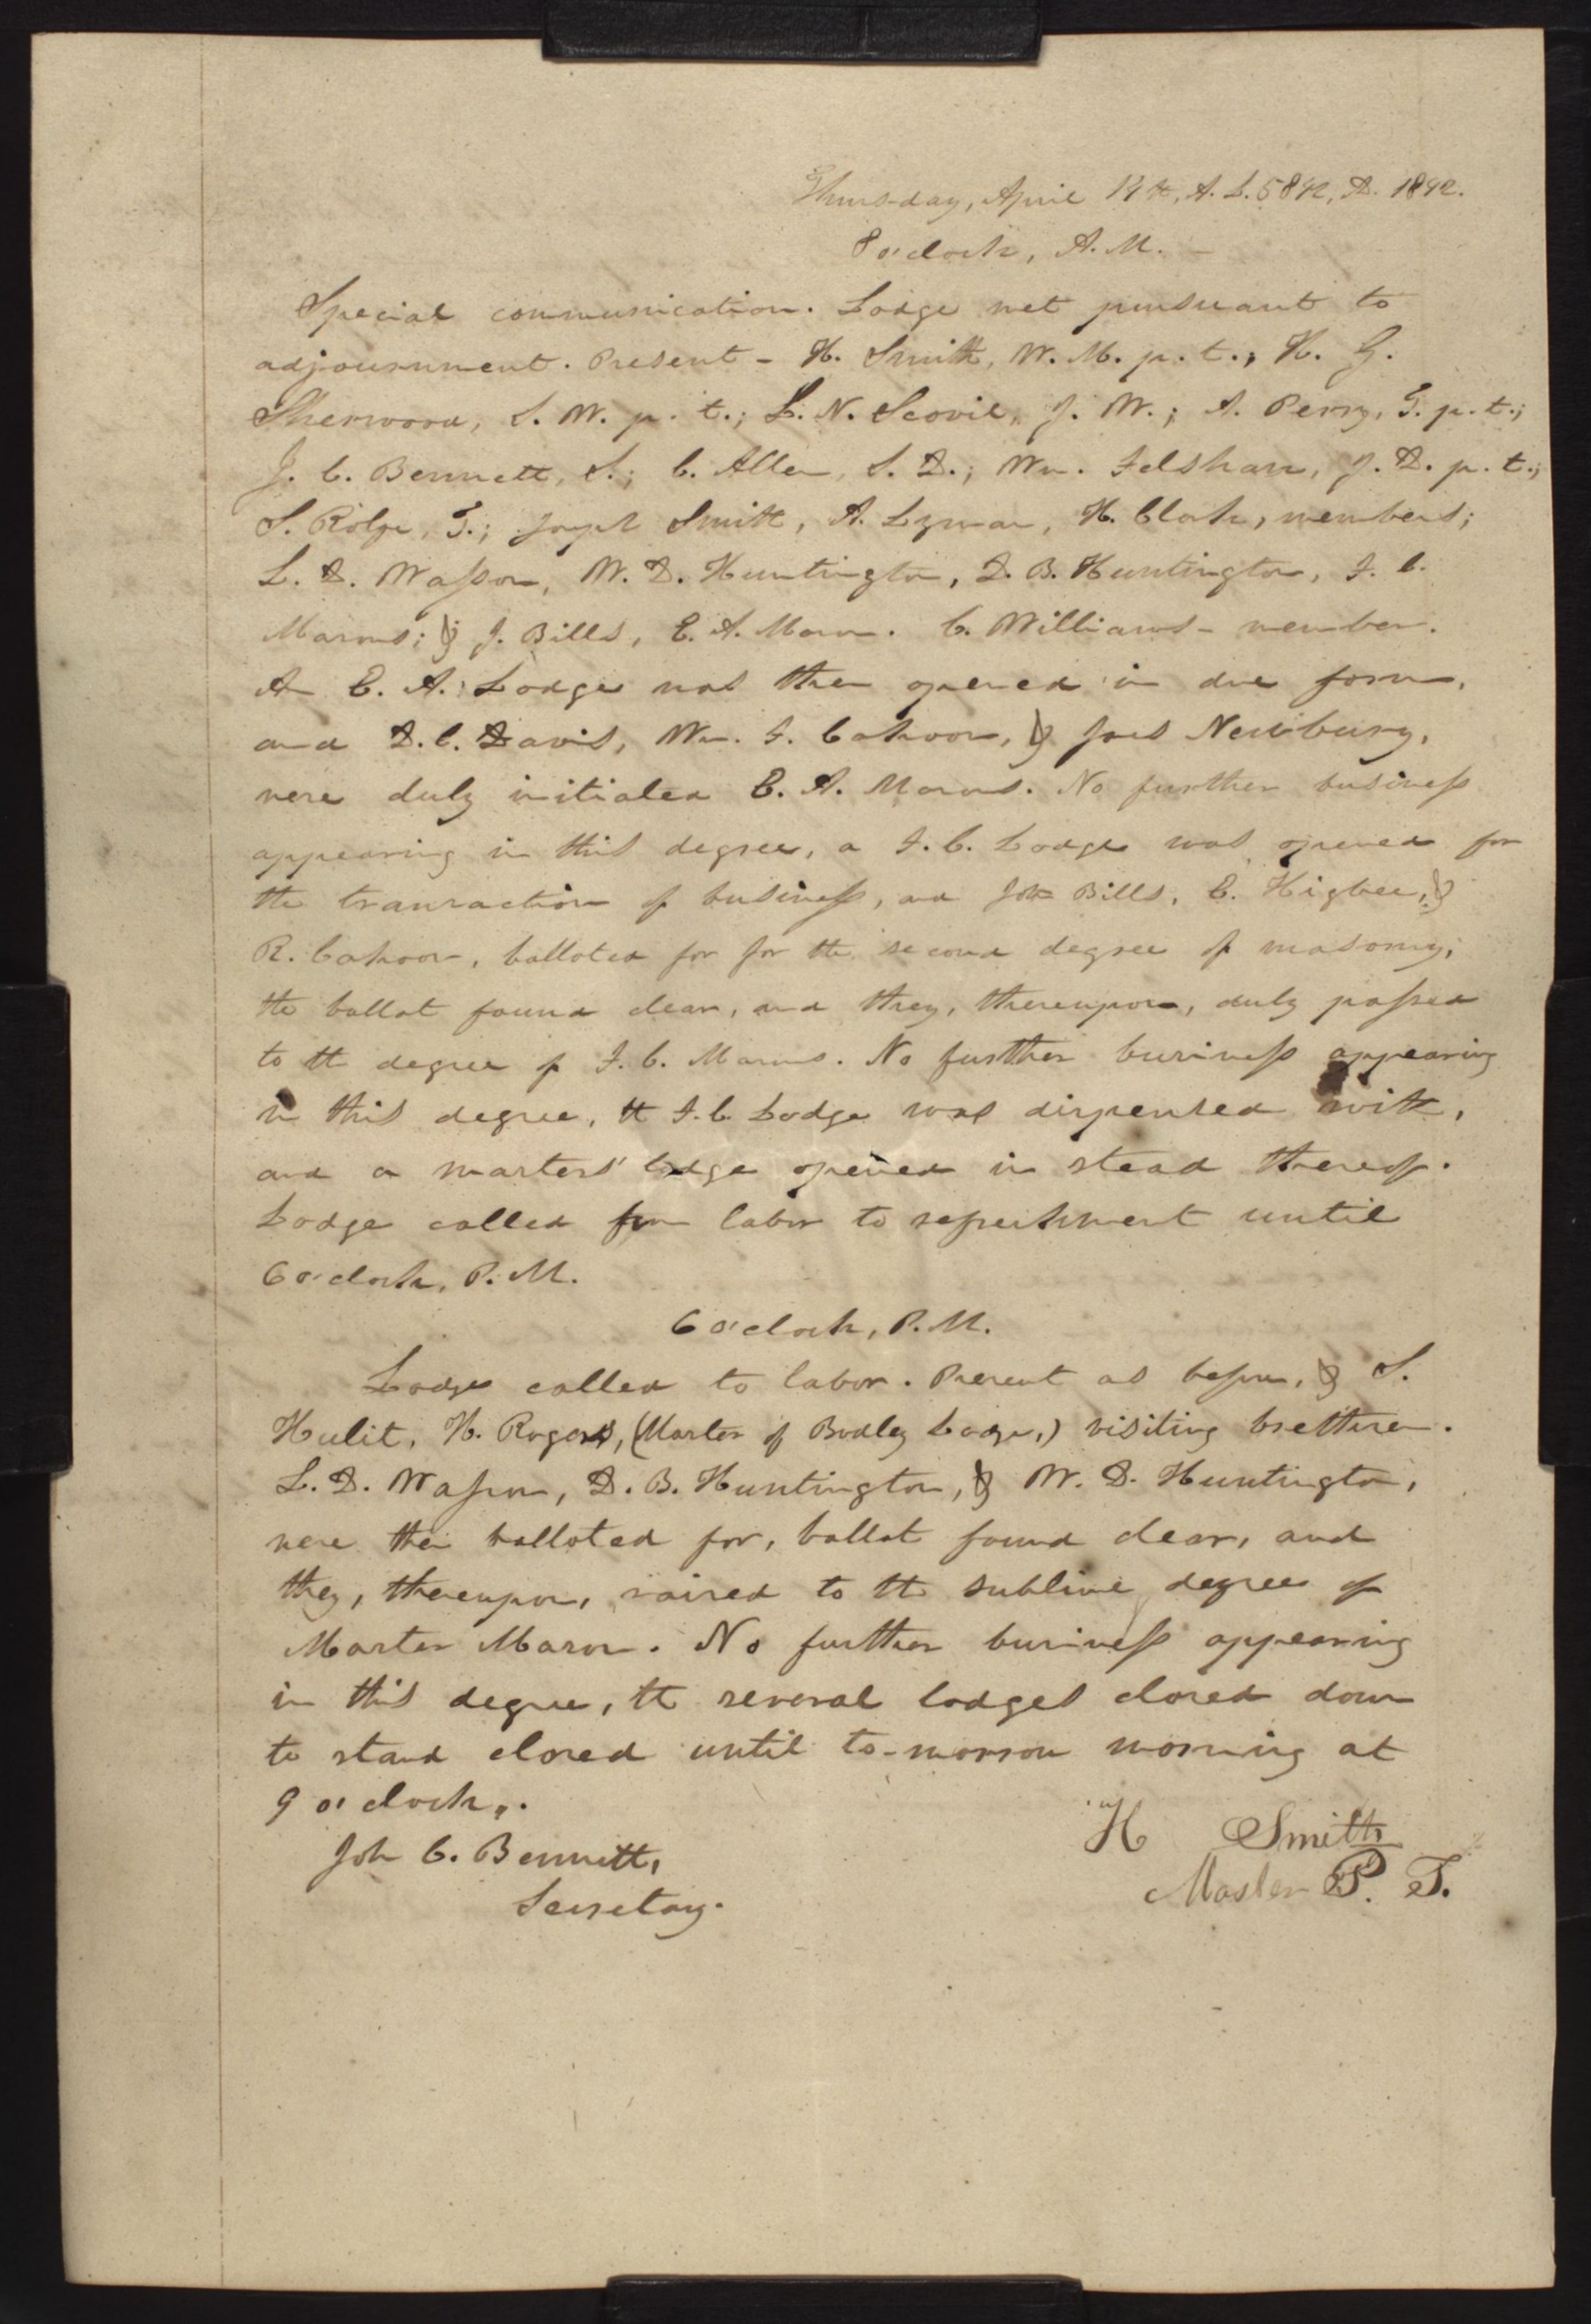 Thursday, April 14th, A. L. 5842, D. 1842.
8 o'clock, A. M. –
Special communication. Lodge met pursuant to
adjournment. Present – H. Smith, W. M. p. t.; H. G.
Sherwood, S. W. p. t.; L. N. Scovil, J. W.; A. Perry, T. p. t.;
J. C. Bennett, S.; C. Allen, S. D.; Wm. Felshaw, J. D. p. t.;
S. Rolfe, T.; Joseph Smith, A. Lyman, H. Clark, members;
L. D. Wasson, W. D. Huntington, D. B. Huntington, F. C.
Masons; & J. Bills, E. A. Mason. C. Williams – member.
An E. A. Lodge was then opened in due form,
and D. C. Davis, Wm. F. Cahoon, & Joel Newbury,
were duly initiated E. A. Masons. No further business
appearing in this degree, a F. C. Lodge was opened for
the transaction of business, and John Bills, E. Higbee, &
R. Cahoon, balloted for for the second degree of masonry;
the ballot found clear, and they, thereupon, duly passed
to the degree of F. C. Masons. No further business appearing
in this degree, the F. C Lodge was dispensed with,
and a masters' lodge opened in stead thereof.
Lodge called from labor to refreshment until
6 o'clock, P. M.
6 o'clock, P. M.
Lodge called to labor. Present as before, & S.
Hulit, H. Rogers, (Master of Bodley Lodge,) visiting brethren.
L. D. Wasson, D. B. Huntington, & W. D. Huntington,
were then balloted for, ballot found clear, and
they, thereupon, raised to the sublime degree of
Master Mason. No further business appearing
in this degree, the several lodges closed down
to stand closed until to-morrow morning at
9 o'clock,.
John C. Bennett,
Secretary.
H Smith
Master P. T.